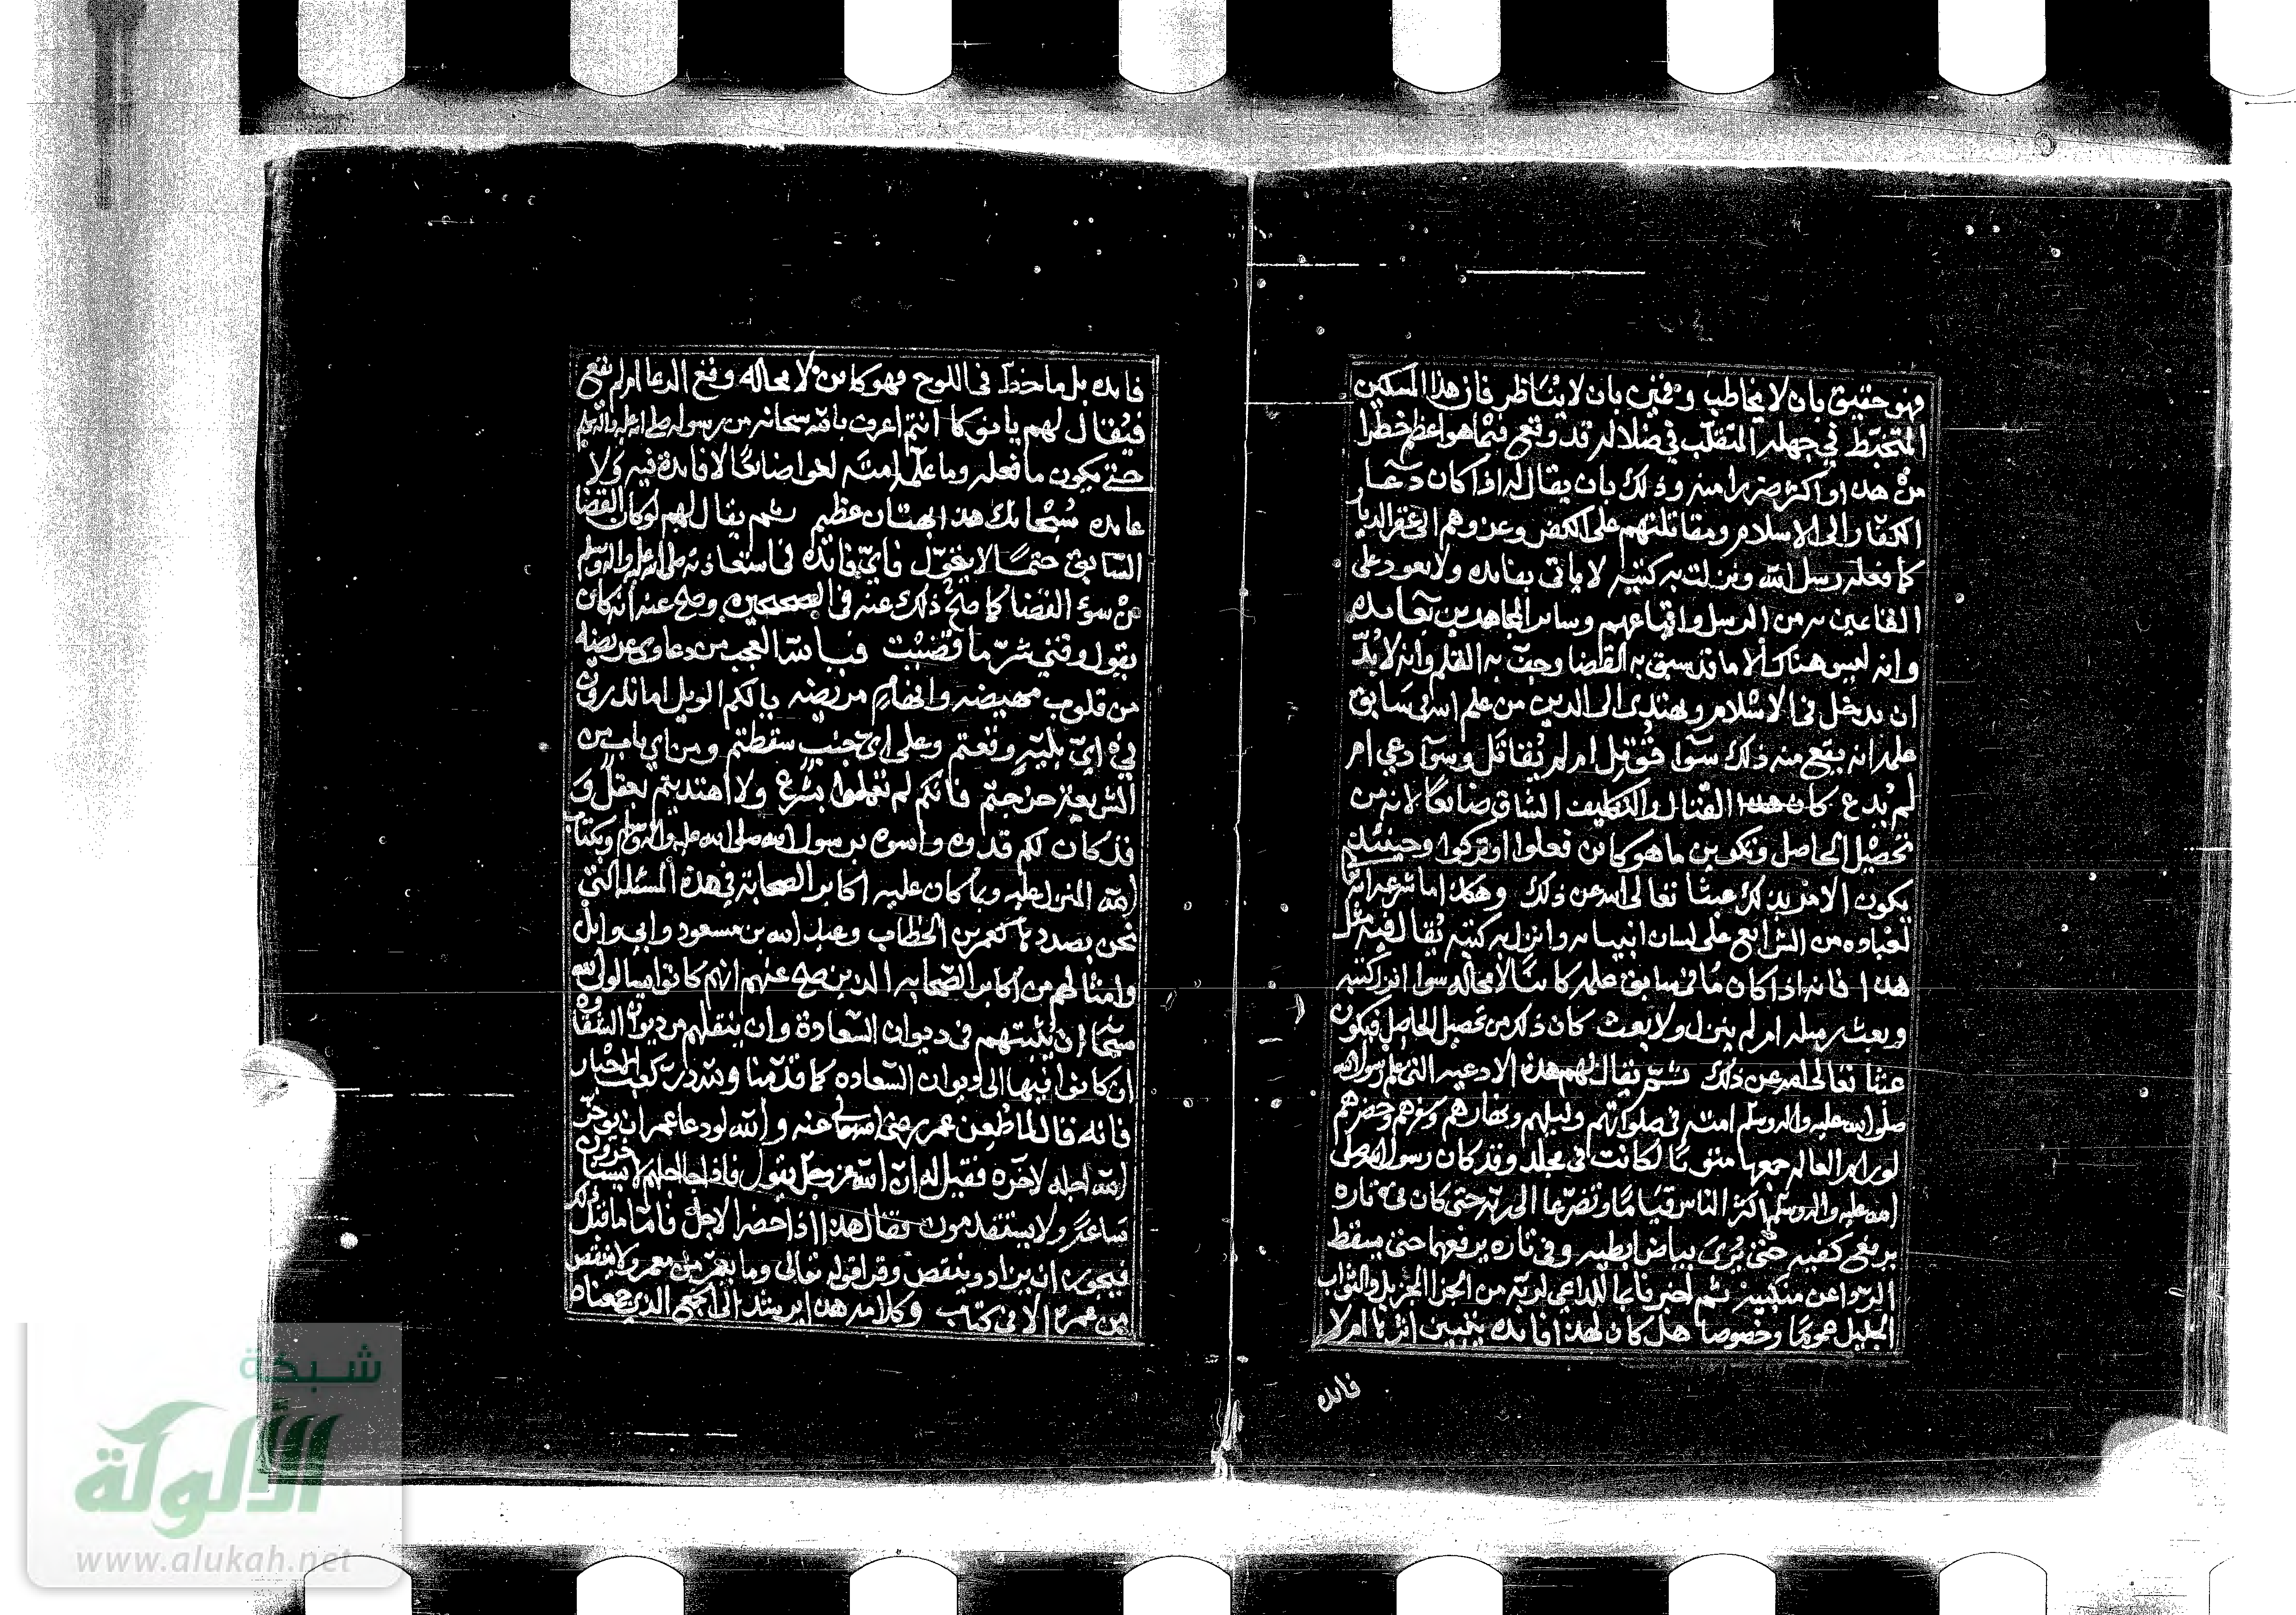 فهو حقيق بان لا يخاطب وقمين بان لا يناظر فان هذا المسكين
المتخبط في جهله المتقلب في ضلاله قد وقع فيما هو اعظم خطرا
من هذا واكثر ضررا منه وذلك بان يقال له اذا كان دعا
الكفار الى الاسلام ومقاتلتهم على الكفر وغزوهم الى عقر الديار
كما فعله رسل الله ونزلت به كتبه لا ياتي بفايده ولا يعود على
الفاعين به من الرسل واتباعهم وساير المجاهدين بعايده
وانه ليس هناك الا ما قد سبق به القضا وجف به القلم وانه لا بد
ان يدخل في الاسلام ويهتدي الى الدين من علم الله في سابق
علمه انه يقع منه ذلك سوا قوتل ام لم يقاتل وسوا دعي ام
لم يدع كان هذا القتال والتكليف الشاق ضايعا لانه من
تحصيل الحاصل وتكوين ما هو كاين فعلوا او تركوا وحينئذ
يكون الامر بذلك عبثا تعالى الله عن ذلك وهكذا ما شرعه الله
لعباده من الشرايع على لسان انبيايه وانزل به كتبه يقال فيه مثل
هذا فانه اذا كان ما في سابق علمه كاينا لا محاله سوا انزل كتبه
وبعث رسله ام لم ينزل ولا بعث كان ذلك من تحصيل الحاصل فيكون
عبثا تعالى الله عن ذلك ثم يقال لهم هذه الادعيه التي علم رسول الله
صلى الله عليه واله وسلم امته في صلواتهم وليلهم ونهارهم وسفرهم وحضرهم
لو رام العالم جمعها متونا لكانت في مجلد وقد كان رسول الله صلى
الله عليه واله وسلم اكثر الناس قياما وتضرعا الى ربه حتى كان في تاره
يرفع كفيه حتى يرى بياض ابطيه وفي تاره يرفعها حتى يسقط
الردا عن منكبيه ثم اخبرنا بما للداعي لربه من الجزا الجزيل والثواب
الجليل عموما وخصوصا هل كان لهذا فايده يتبين اثرها ام لا
فايده
فايده بل ما خط في اللوح فهو كاين لا محاله وقع الدعا ام لم يقع
فيقال لهم يا نوكا انتم اعرف بالله سبحانه من رسوله صلى الله عليه واله وسلم
حتى يكون ما فعله وما علمه امته لغوا ضايعا لا فايدة فيه ولا
عايده سبحانك هذا بهتان عظيم ثم يقال لهم لو كان القضا
السابق حتما لا يتحول فاي فائده في استعاذته صلى الله عليه واله وسلم
من سؤ القضا كما صح ذلك عنه في الصحيحين وصح عنه انه كان
يقول وقني شر ما قضيت فيا لله العجب من دعاوى عريضه
من قلوب مهيضه وافهام مريضه يا لكم الويل اما تدرون
في اي بليه وقعتم وعلى اي جنب سقطتم ومن اي باب من
الشريعه خرجتم فانكم لم تعملوا بشرع ولا اهتديتم بعقل و
قد كان لكم قدوه واسوه برسول الله صلى الله عليه واله وسلم وبكتاب
الله المنزل عليه وبما كان عليه اكابر الصحابة في هذه المسئله التي
نحن بصددها كعمر بن الخطاب وعبد الله بن مسعود وابي وايل
وامثالهم من اكابر الصحابه الذين صح عنهم انهم كانوا يسالون الله
سبحانه ان يثبتهم في ديوان السعادة وان ينقلهم من ديوان الشقاوه
ان كانوا فيها الى ديوان السعاده كما قدمنا ولله در كعب الاحبار
فانه قال لما طعن عمر رضي الله عنه والله لو دعا عمر ان يوخر
الله اجله لاخره فقيل له ان الله عز وجل يقول فاذا جا اجلهم لا يستاخرون
ساعة ولا يستقدمون فقال هذا اذا حضر الاجل فاما ما قبل ذلك
فيجوز ان يزاد وينقص وقرا قوله تعالى وما يعمر من معمر ولا ينقص
من عمره الا في كتاب وكلامه هذا يرشد الى الجمع الذي جمعناه
شبكة
الألوكة
www.alukah.net